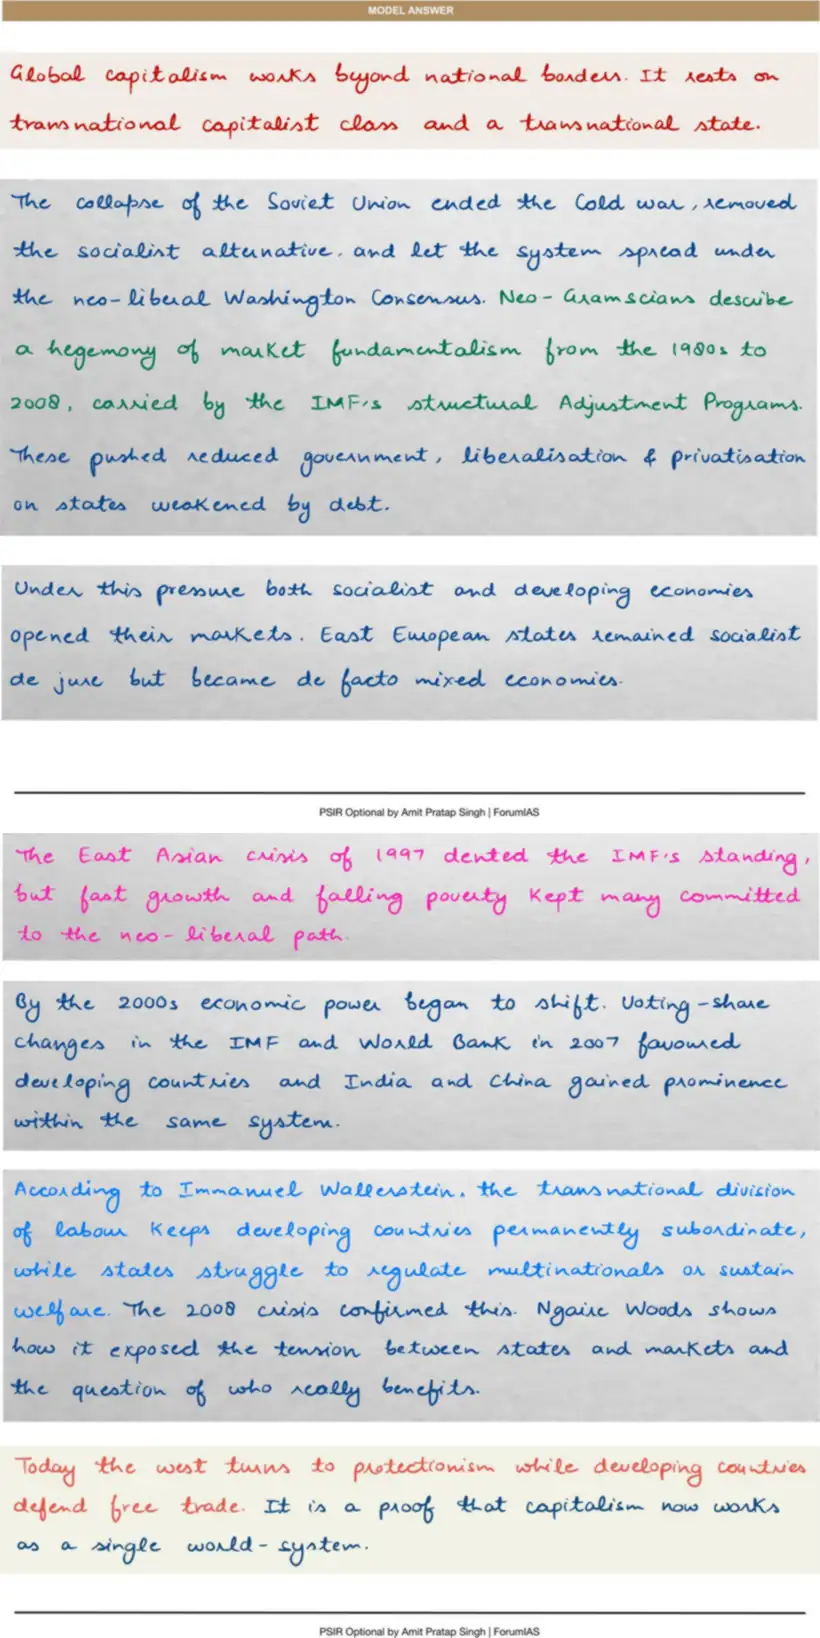 MODEL ANSWER
Global capitalism works beyond national borders. It rests on
transnational capitalist class and a transnational state.
The collapse of the Soviet Union ended the Cold war, removed
the socialist alternative, and let the system spread under
the neo-liberal Washington Consensus. Neo-Gramscians describe
a hegemony of market fundamentalism from the 1980s to
2008, carried by the IMF's structural Adjustment Programs.
These pushed reduced government, liberalisation & privatisation
on states weakened by debt.
Under this pressure both socialist and developing economies
opened their markets. East European states remained socialist
de jure but became de facto mixed economies.
PSIR Optional by Amit Pratap Singh | ForumIAS
The East Asian crisis of 1997 dented the IMF's standing,
but fast growth and falling poverty kept many committed
to the neo-liberal path.
By the 2000s economic power began to shift. Voting-share
changes in the IMF and World Bank in 2007 favoured
developing countries and India and China gained prominence
within the same system.
According to Immanuel Wallerstein, the transnational division
of labour keeps developing countries permanently subordinate,
while states struggle to regulate multinationals or sustain
welfare. The 2008 crisis confirmed this. Ngaire Woods shows
how it exposed the tension between states and markets and
the question of who really benefits.
Today the west turns to protectionism while developing countries
defend free trade. It is a proof that capitalism now works
as a single world-system.
PSIR Optional by Amit Pratap Singh | ForumIAS